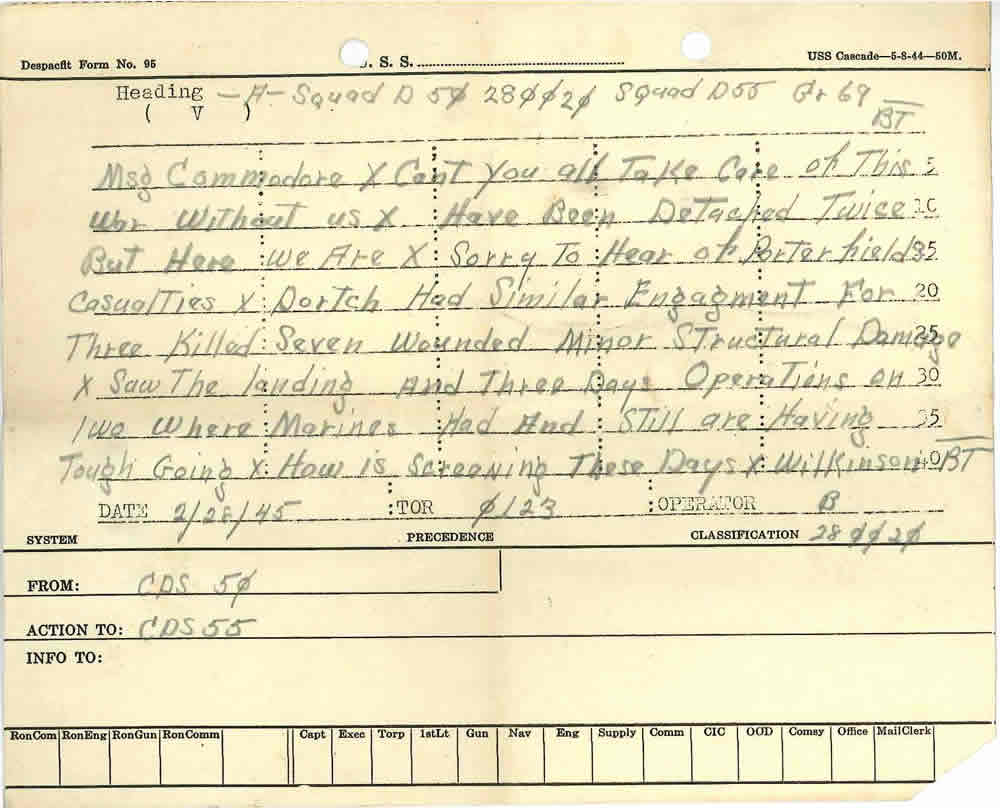 Despacht Form No. 95 . S. S. USS Cascade—5-8-44—50M.
Heading —A— Squad D 5Ø 28ØØ2Ø Squad D55 Gr 69
( V ) BT
Msg Commodore X Cant You all Take Care of This 5
War Without us X Have Been Detached Twice 10
But Here We Are X Sorry To Hear of Porterfields
Casualties X Dortch Had Similar Engagment For 20
Three Killed Seven Wounded Minor Structural Damage
X Saw The landing And Three Days Operations on 30
Iwo Where Marines Had And Still are Having 35
Tough Going X How is Screening These Days X Wilkinson 40 BT
DATE 2/28/45 :TOR Ø123 :OPERATOR B
SYSTEM PRECEDENCE CLASSIFICATION 28ØØ2Ø
FROM: CDS 5Ø
ACTION TO: CDS 55
INFO TO:
RonCom RonEng RonGun RonComm Capt Exec Torp 1stLt Gun Nav Eng Supply Comm CIC OOD Comsy Office MailClerk